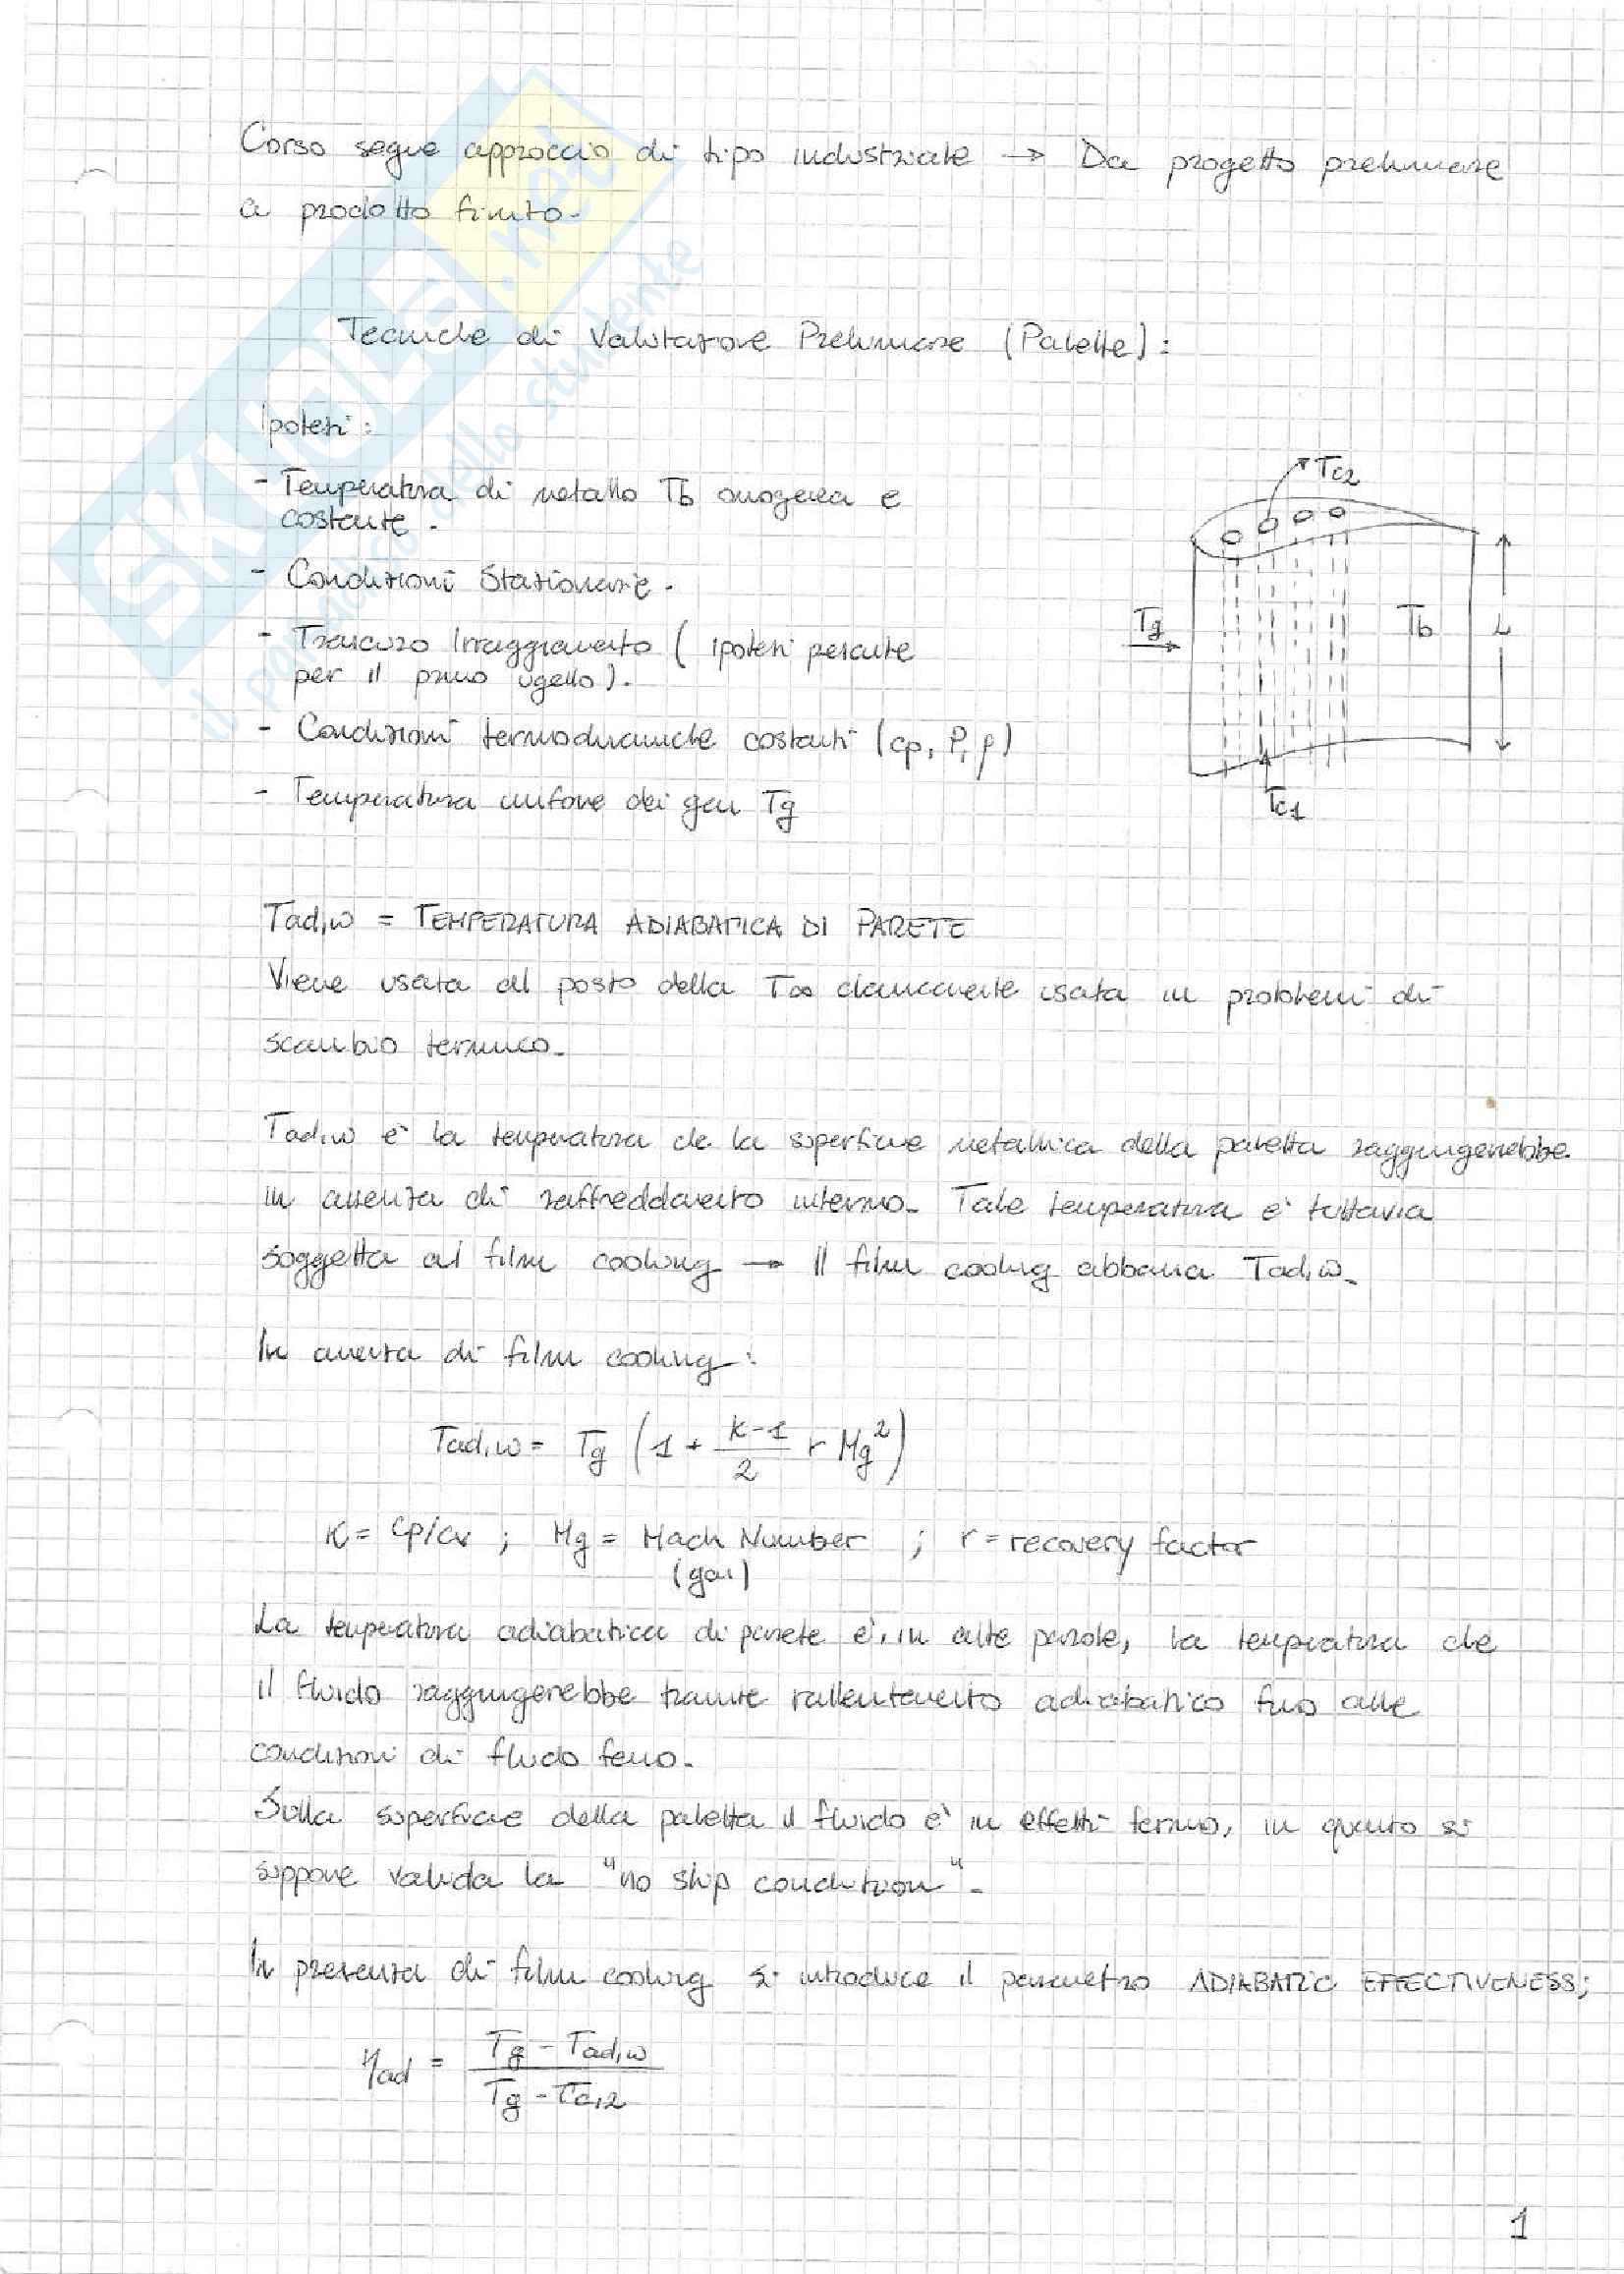 Corso segue approccio di tipo industriale → Da progetto preliminare
a prodotto finito.
Tecniche di Valutazione Preliminare (Palette):
Ipotesi:
- Temperatura di metallo Tb omogenea e
costante.
- Condizioni Stazionarie.
- Trascuro Irraggiamento ( ipotesi pesante
per il primo ugello).
- Condizioni termodinamiche costanti (cp, P, ρ)
- Temperatura uniforme dei gas Tg
Tc2
Tg
Tb
L
Tc1
Tad,w = TEMPERATURA ADIABATICA DI PARETE
Viene usata al posto della T∞ classicamente usata in problemi di
scambio termico.
Tad,w è la temperatura che la superficie metallica della paletta raggiungerebbe
in assenza di raffreddamento interno. Tale temperatura è tuttavia
soggetta al film cooling → Il film cooling abbassa Tad,w.
In assenza di film cooling:
Tad,w = Tg (1 + (K-1)/2 r Mg²)
K = cp/cv ; Mg = Mach Number ; r = recovery factor
(gas)
La temperatura adiabatica di parete è, in altre parole, la temperatura che
il fluido raggiungerebbe tramite rallentamento adiabatico fino alle
condizioni di fluido fermo.
Sulla superficie della paletta il fluido è in effetti fermo, in quanto si
suppone valida la "no slip condition".
In presenza di film cooling si introduce il parametro ADIABATIC EFFECTIVENESS;
ηad = (Tg - Tad,w)/(Tg - Tc,2)
1
SKUOLA.net
il paradiso dello studente